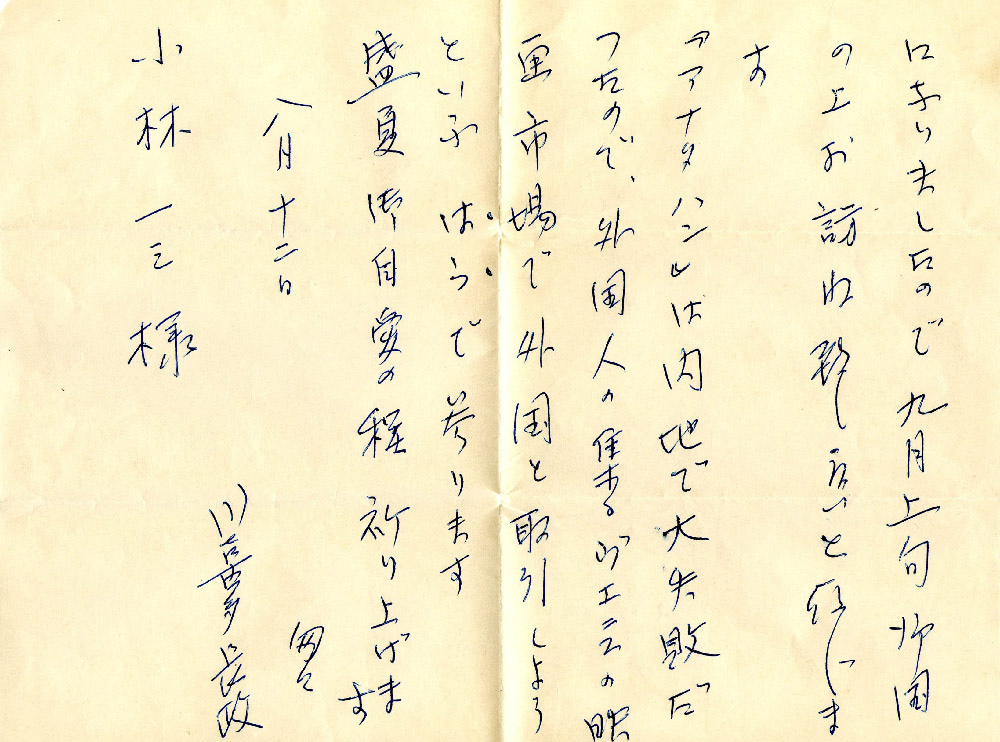 になりましたので九月上旬帰国
の上お訪ね致し度いと存じま
す
『アナタハン』は内地で大失敗だ
つたので、外国人の集まるヴエニスの映
画市場で外国と取引しよう
といふはらで参ります
盛夏御自愛の程祈り上げます
匆々
八月十二日
川喜多長政
小林一三様